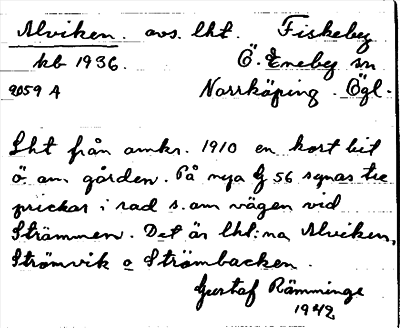 Alviken. avs. lht. Fiskeby
kb 1936. Ö. Eneby sn
9059 A Norrköping. Ögl.
Lht från omkr. 1910 en kort bit
ö. om gården. På nya G 56 synas tre
prickar i rad s. om vägen vid
Strömmen. Det är lht:na Alviken,
Strömvik o Strömbacken.
Gustaf Rämminge
1942